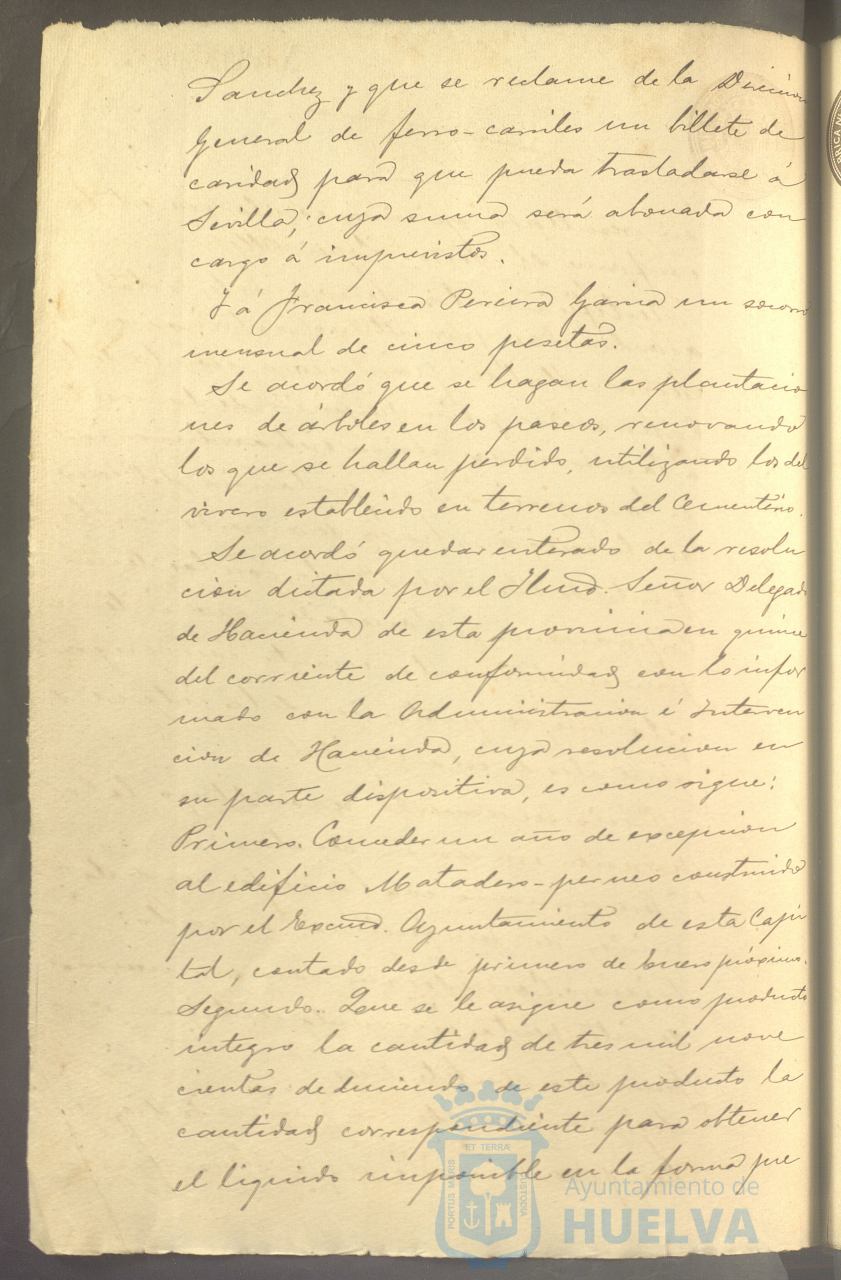 Sanchez y que se reclame de la Direccion
General de ferro-carriles un billete de
caridad para que pueda trasladarse á
Sevilla; cuya suma será abonada con
cargo á imprevistos.
Y á Francisca Pereira Garcia un socorro
mensual de cinco pesetas.
Se acordó que se hagan las plantacio
nes de árboles en los paseos, renovando
los que se hallan perdido, utilizando los del
vivero establecido en terrenos del Cementerio.
Se acordó quedar enterado de la resolu
cion dictada por el Ilmo. Señor Delegado
de Hacienda de esta provincia en quince
del corriente de conformidad con lo infor
mado con la Administracion é Interven
cion de Hacienda, cuya resolucion en
su parte dispositiva, es como sigue:
Primero. Conceder un año de excepcion
al edificio Matadero-perneo construido
por el Excmo. Ayuntamiento de esta Capi
tal, contado desde primero de Enero próximo.
Segundo.. Que se le asigne como producto
integro la cantidad de tres mil nove
cientas deduciendo de este producto la
cantidad correspondiente para obtener
el liquido imponible en la forma pre
ET TERRA
PORTUS MARIS
CUSTODIA
Ayuntamiento de
HUELVA